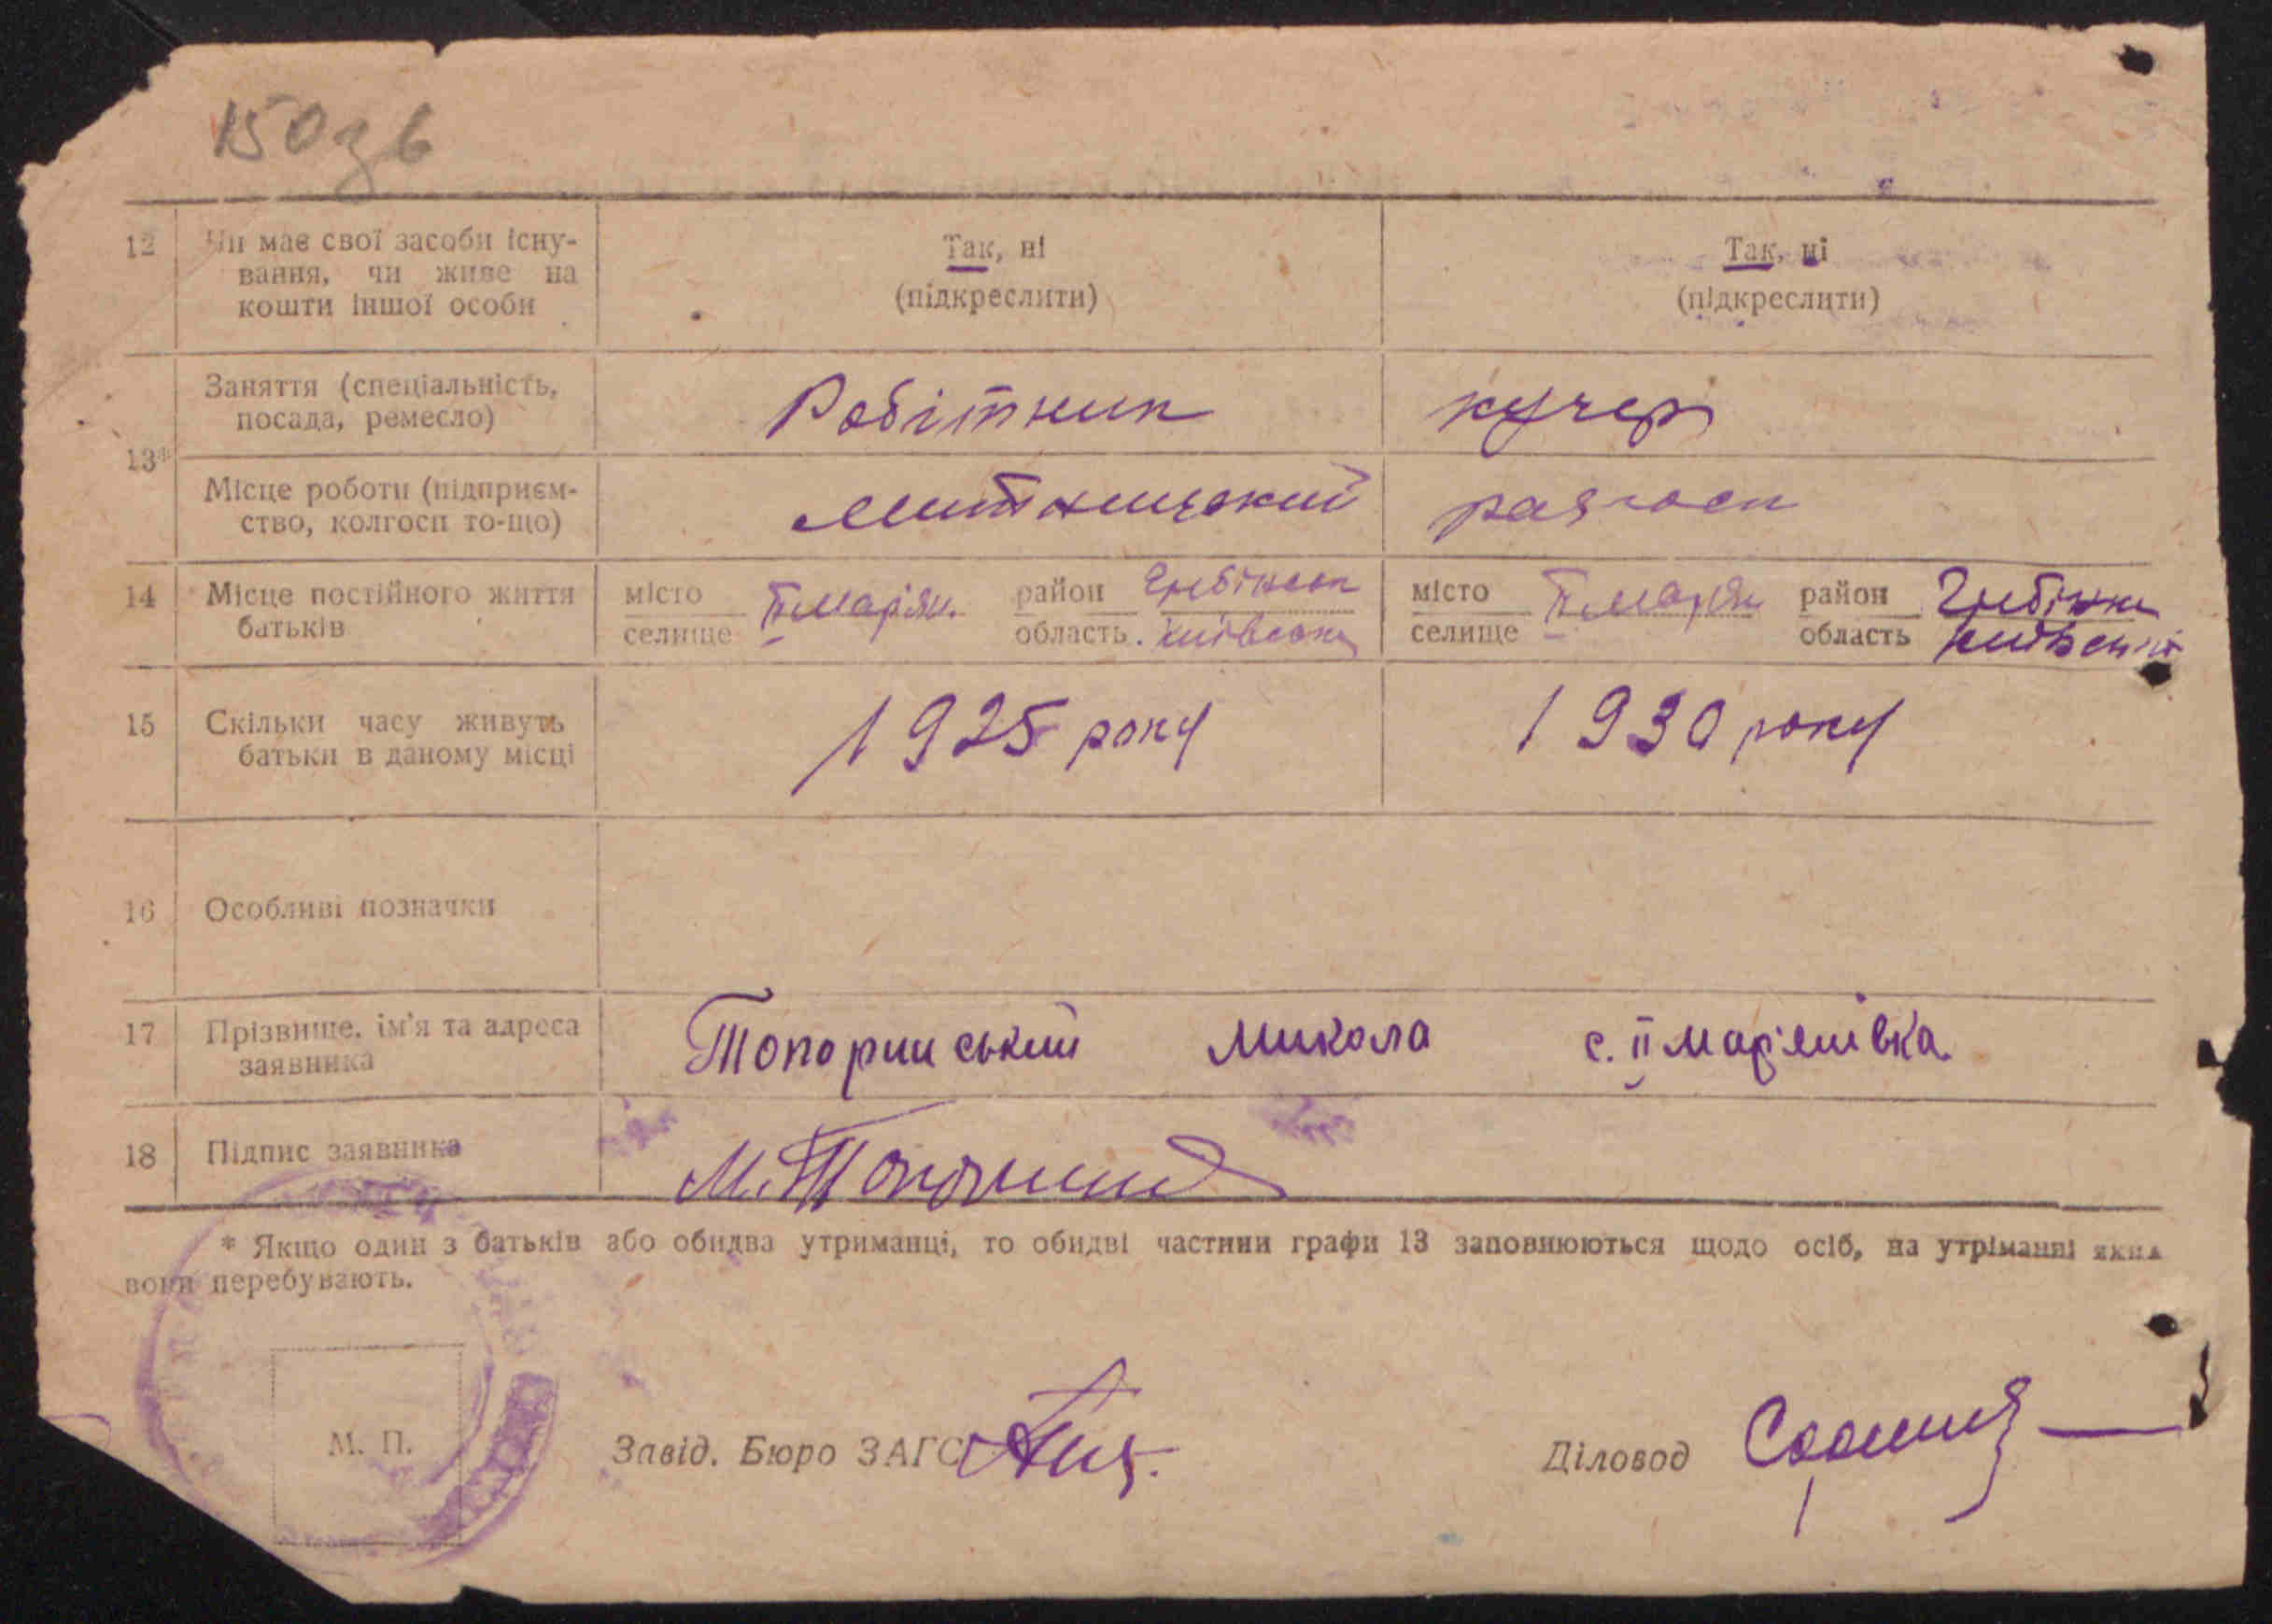 150зв
12 Чи має свої засоби існу-
вання, чи живе на
кошти іншої особи
Так, ні
(підкреслити)
Так, ні
(підкреслити)
13*
Заняття (спеціальність,
посада, ремесло)
Робітник
кучер
Місце роботи (підприєм-
ство, колгосп то-що)
Митницький
радгосп
14 Місце постійного життя
батьків
місто
селище
ІІ Мар'ян.
район
область
Гребінськ
Київська
місто
селище
ІІ Мар'ян
район
область
Гребінки
15 Скільки часу живуть
батьки в даному місці
1925 року
1930 року
16 Особливі позначки
17 Прізвище, ім'я та адреса
заявника
Микола с. ІІ Мар'янівка.
18 Підпис заявника
* Якщо один з батьків або обидва утриманці, то обидві частини графи 13 заповнюються щодо осіб, на утріманні яких
вони перебувають.
М. П.
Завід. Бюро ЗАГС
Діловод